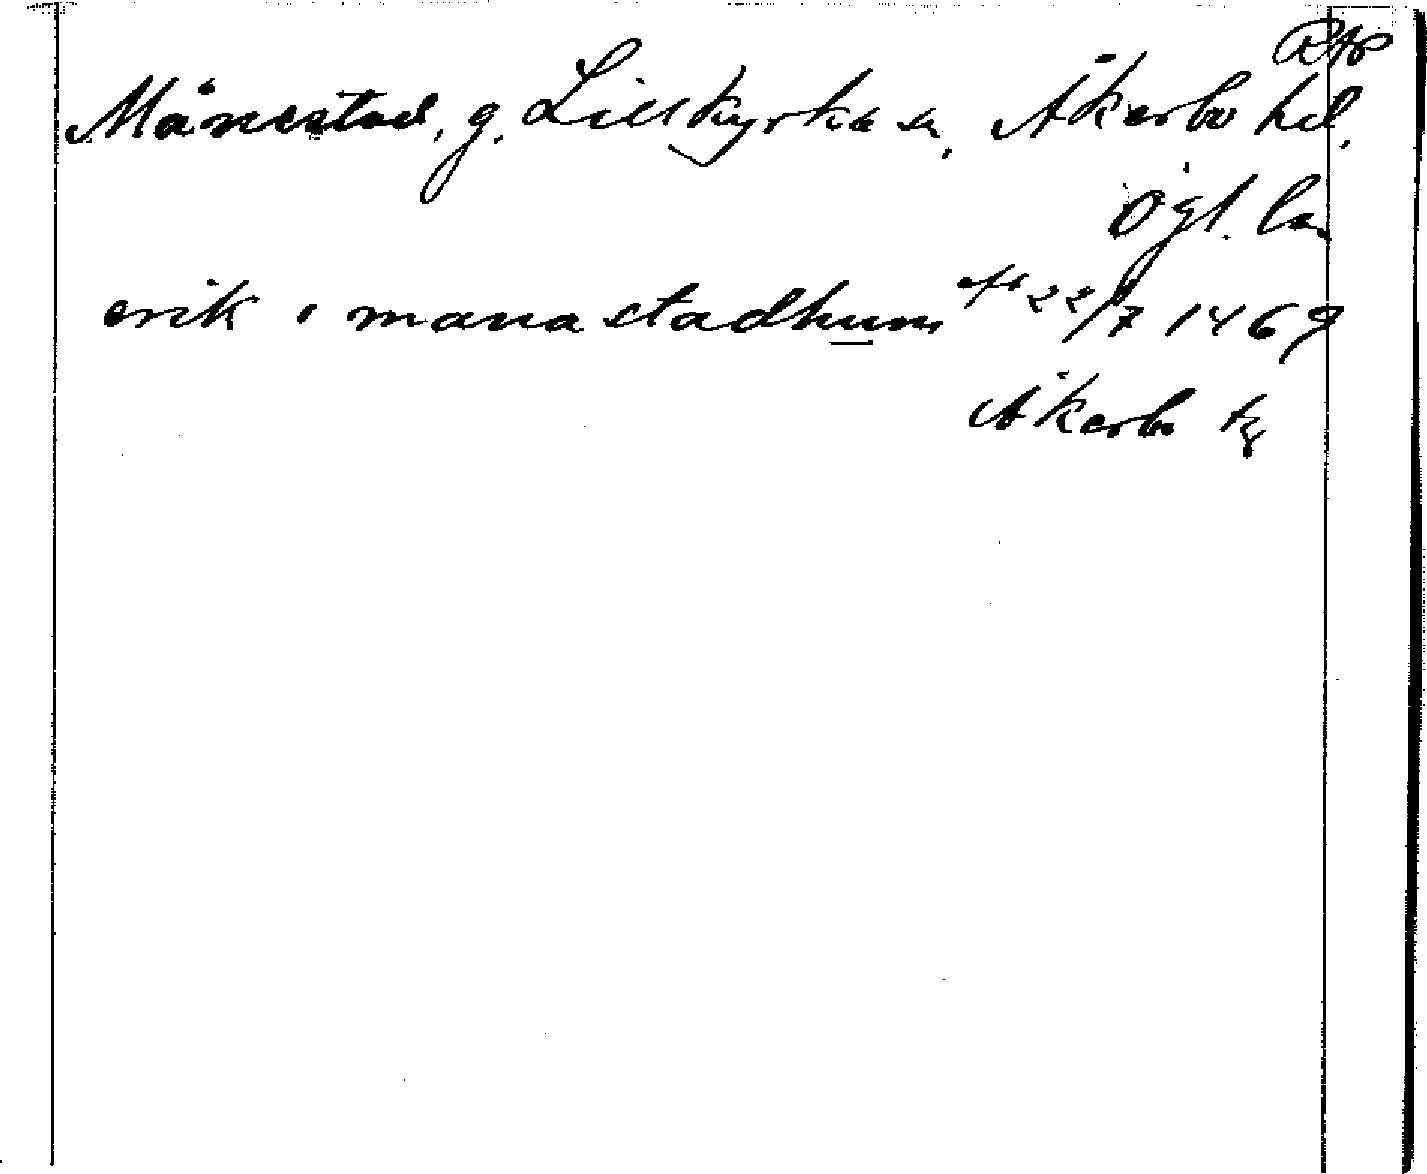 RAp
Månestad, g. Lillkyrka sn, Åkerbo hd,
Ögl. län
erik i mana stadhum 22/7 1469
Åkerbo tg